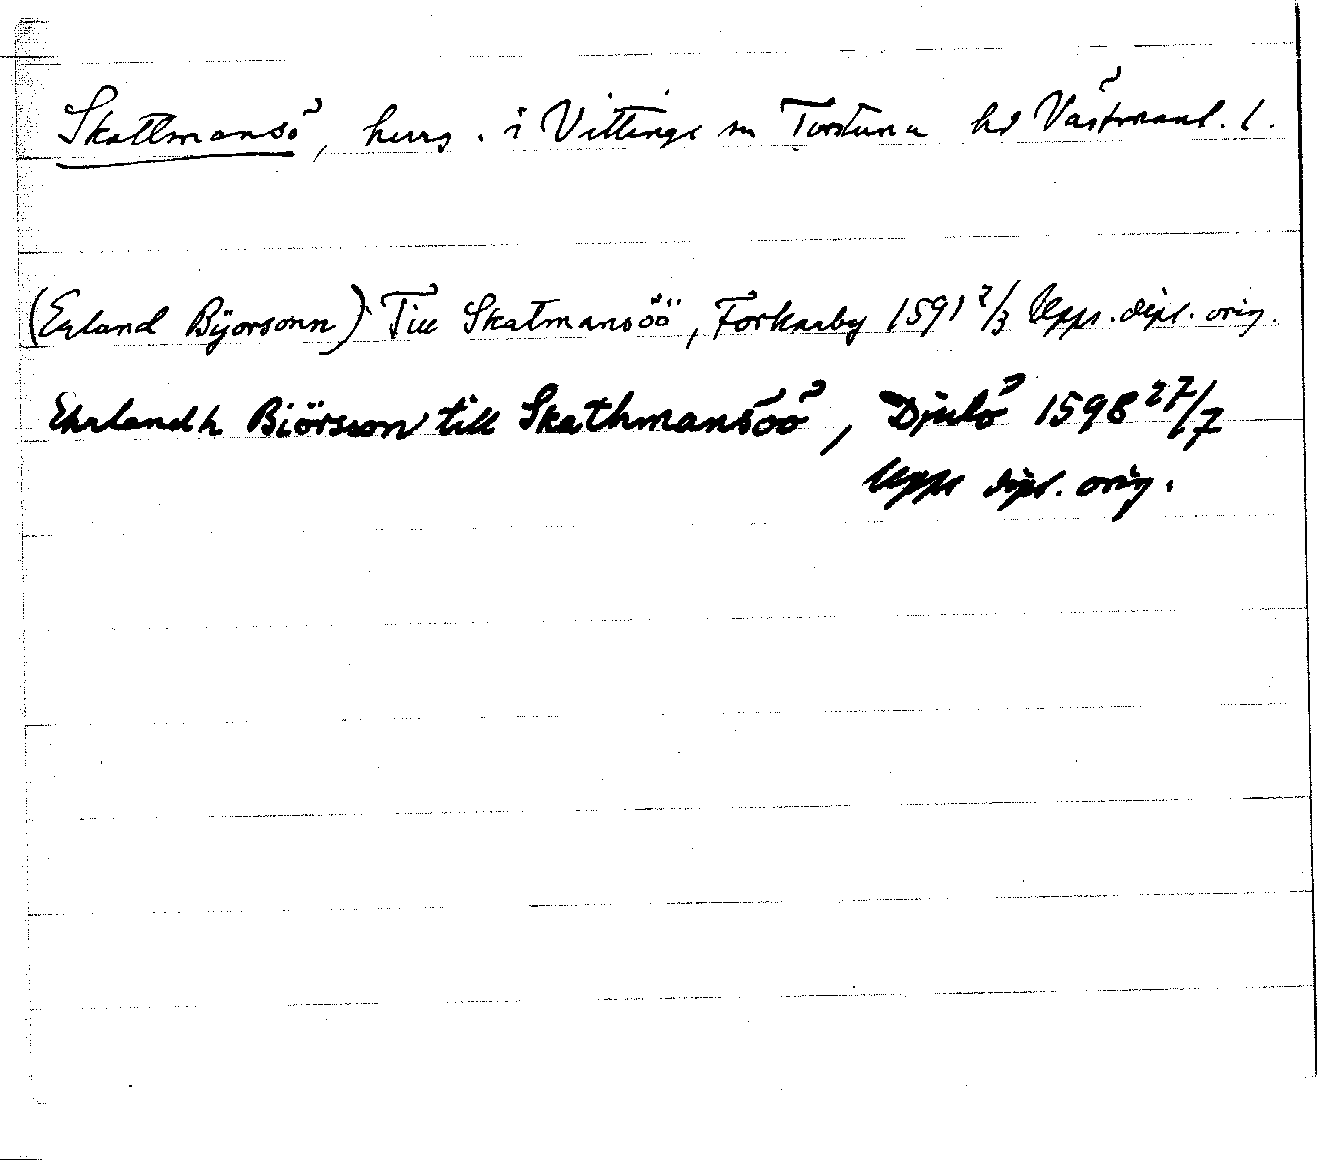 Skattmansö, herrg. i Vittinge sn Torstuna hd Västmanl. l.
(Erland Bÿorsonn) Till Skatmansöö, Forkarby 1591 2/3 Upps. dipl. orig.
Ehrlandh Biörsson till Skathmansöö, Djulö 1598 27/7
Upps dipl. orig.